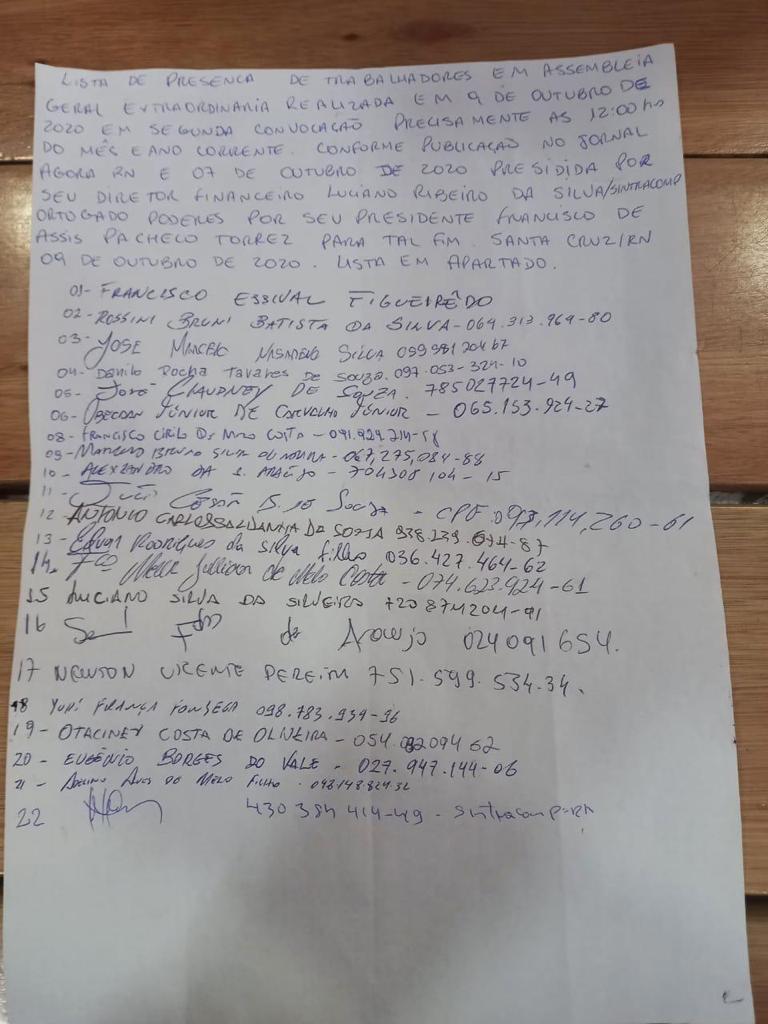 LISTA DE PRESENCA DE TRABALHADORES EM ASSEMBLEIA
GERAL EXTRAORDINARIA REALIZADA EM 9 DE OUTUBRO DE
2020 EM SEGUNDA CONVOCAÇÃO PRECISAMENTE AS 12:00 hs
DO MÊS E ANO CORRENTE. CONFORME PUBLICAÇÃO NO JORNAL
AGORA RN E 07 DE OUTUBRO DE 2020 PRESIDIDA POR
SEU DIRETOR FINANCEIRO LUCIANO RIBEIRO DA SILVA/SINTRACOMP
ORTOGADO PODERES POR SEU PRESIDENTE FRANCISCO DE
ASSIS PACHECO TORREZ PARA TAL FIM. SANTA CRUZ/RN
09 DE OUTUBRO DE 2020. LISTA EM APARTADO.
01- FRANCISCO ESSIVAL FIGUEIRÊDO
02- ROSSINI BRUNI BATISTA DA SILVA - 064.313.969-80
03- JOSE MARCELO SILVA
04- Danilo Rocha Tavares de Souza. 097.053-324-10
05- José CLAUDNEY DE SOUZA. 785027724-49
06- JÚNIOR DE CARVALHO JÚNIOR - 065.153.924-27
08- FRANCISCO CIRILO DE MELO COSTA -
09- BRUNO SILVA - 067,275,084-88
10- DA S. ARAÚJO - 704308104-15
11- Souza - CPF. 114,260-61
12 ANTONIO CARLOS SALDANHA DA
13- Rodrigues da silva filho 036.427.464-62
14. Fco de Melo Costa - 074.623.924-61
15 LUCIANO SILVA DA SILVEIRA
16 de Araujo 024091654.
17 NEWTON VICENTE PEREIRA 751.599.534.34.
18 YURI FRANÇA FONSECA 098.783.934-96
19- OTACINEY COSTA DE OLIVEIRA - 054
20- EUGÊNIO BORGES DO VALE - 027.947.144-06
21- DE MELO FILHO.
22 430 384 414-49 - Sintracomp-RN